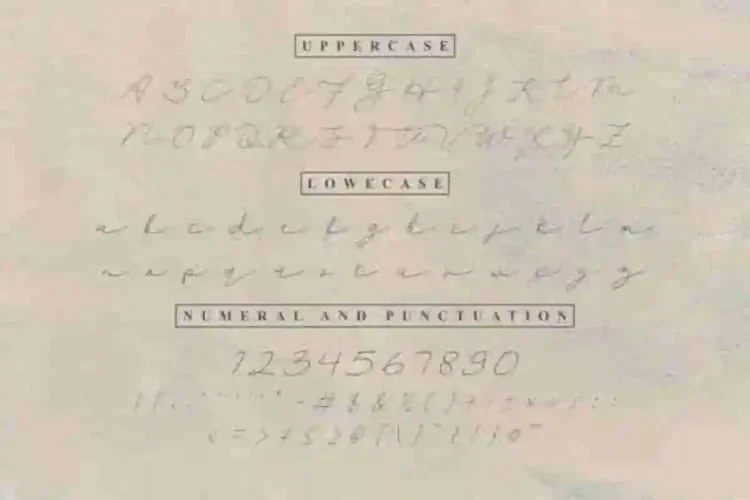 UPPERCASE
A B C D E F G H I J K L M
N O P Q R S T U V W X Y Z
LOWECASE
a b c d e f g h i j k l m
n o p q r s t u v w x y z
NUMERAL AND PUNCTUATION
1234567890